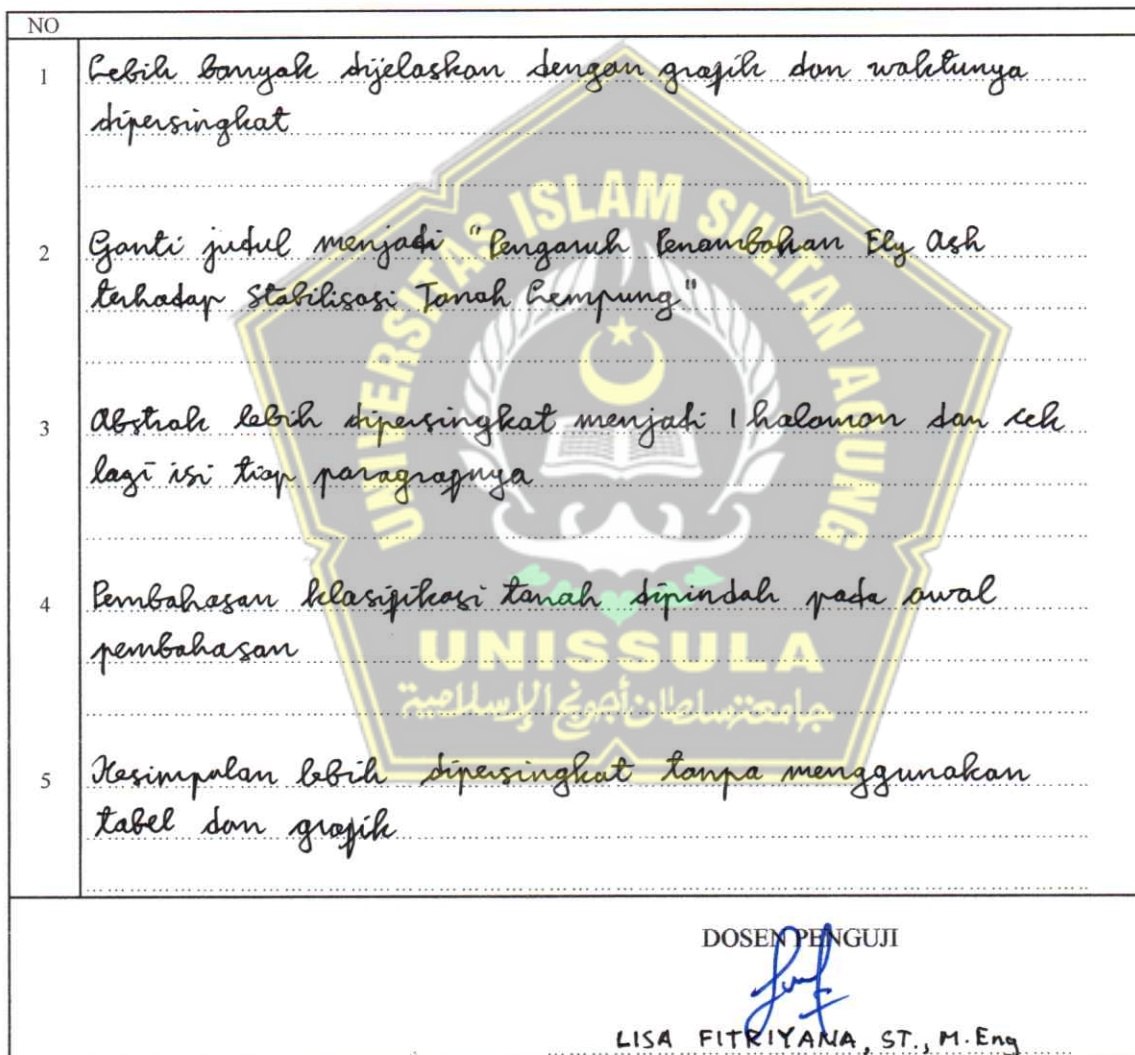 NO
1 Lebih banyak dijelaskan dengan grafik dan waktunya
dipersingkat
2 Ganti judul menjadi "Pengaruh Penambahan Fly Ash
terhadap Stabilisasi Tanah Lempung"
3 Abstrak lebih dipersingkat menjadi 1 halaman dan cek
lagi isi tiap paragrafnya
4 Pembahasan klasifikasi tanah dipindah pada awal
pembahasan
5 Kesimpulan lebih dipersingkat tanpa menggunakan
tabel dan grafik
UNIVERSITAS ISLAM SULTAN AGUNG
UNISSULA
جامعة سلطان أجونج الإسلامية
DOSEN PENGUJI
LISA FITRIYANA, ST., M.Eng